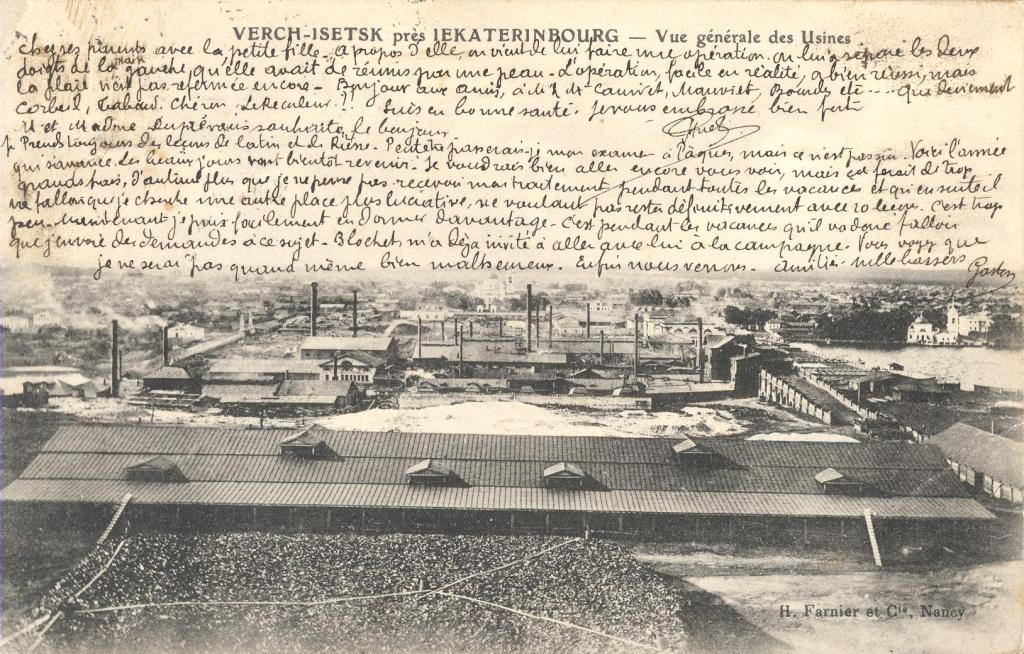 VERCH-ISETSK près IEKATERINBOURG — Vue générale des Usines
Chères parents avec la petite fille. à propos d'elle, on vient de lui faire une opération. on lui a séparé les deux
doigts de la main gauche, qu'elle avait de réunis par une peau. L'opération, facile en réalité, a bien réussi, mais
la plaie n'est pas refermée encore. Bonjour aux amis, à Mauviet, etc.... Que deviennent
Corbeil, Chéron, ?! Suis en bonne santé. Je vous embrasse bien fort
M et Madme souhaite le bonjour.
Je Prends toujours des leçons de latin et de Russe. Peut être passerais-je mon examen à Pâques, mais ce n'est pas sûr. Voici l'année
qui s'avance. Les beaux jours vont bientôt revenir. Je voudrais bien aller encore vous voir, mais ça ferait de trop
grands frais, d'autant plus que je ne pense pas recevoir mon traitement pendant toutes les vacances et qu'ensuite il
va falloir que je cherche une autre place plus lucrative, ne voulant pas rester définitivement avec C'est trop
peu. Maintenant je puis facilement en donner davantage. C'est pendant les vacances qu'il va donc falloir
que j'envoie des demandes à ce sujet. Blochet m'a déjà invité à aller avec lui à la campagne. Vous voyez que
je ne serai pas quand même bien malheureux. Enfin nous verrons. Amitiés mille baisers
Gaston
H. Farnier et Cie, Nancy